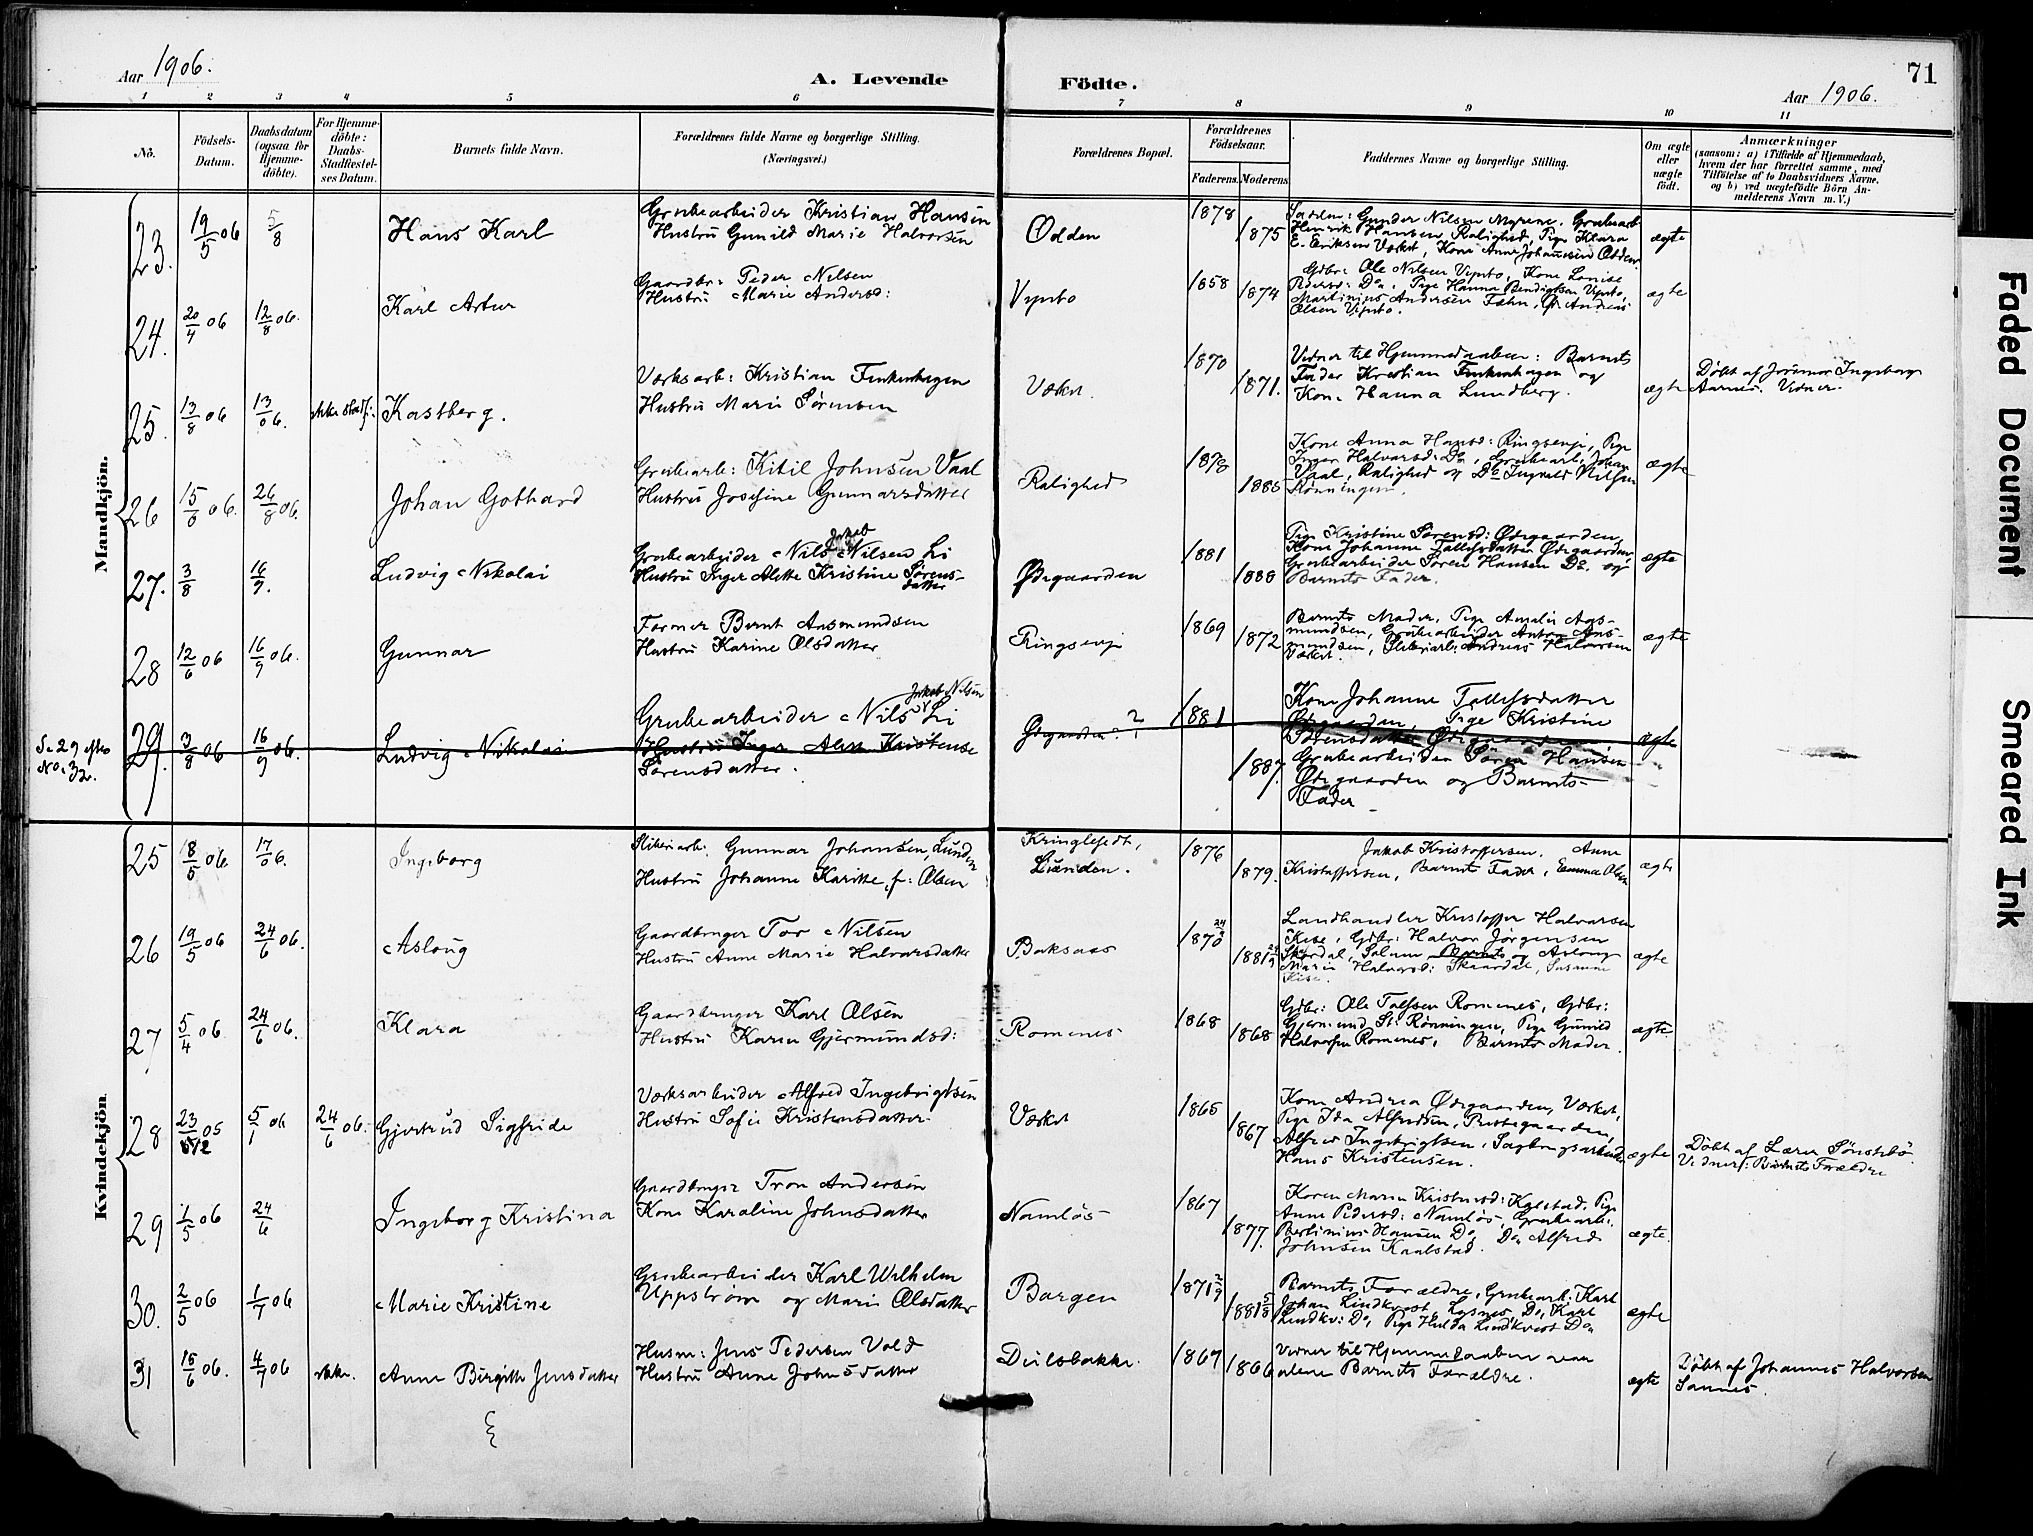 Aar 1906.
A. Levende Födte.
Aar 1906.
71
1 2 3 4 5 6 7 8 9 10 11
No.
Födsels-Datum.
Daabsdatum (ogsaa for Hjemme-döbte).
For Hjemme-döbte: Daabs-Stadfæstel-ses Datum.
Barnets fulde Navn.
Forældrenes fulde Navne og borgerlige Stilling.
(Næringsvei.)
Forældrenes Bopæl.
Forældrenes Födselsaar.
Faderens. Moderens.
Faddernes Navne og borgerlige Stilling.
Om ægte eller uægte födt.
Anmærkninger
(saasom: a) i Tilfælde af Hjemmedaab, hvem der har forrettet samme, med Tilföielse af to Daabsvidners Navne, og b) ved uægtefödte Börn An-melderens Navn m. V.)
Mandkjön.
23. 19/5 06 5/8 Hans Karl
Grubearbeider Kristian Hansen
Hustru Gunild Marie Halvorsen
Odden 1878 1875
Gunder Nilsen Myrene, Grubearb
Henrik Hansen Ralighed, Pige Klara
E. Eriksen Værket, Kone Anne Johannesen Odden.
ægte
24. 20/4 06 12/8 06. Karl Artur
Gaardbr: Peder Nilsen
Hustru Marie Andersd:
Vynto 1858 1874
Gdbr: Ole Nilsen Vynto, Kone Lovise
Pedersd: Do, Pige Hanna Bendigtsen Vynto,
Martinius Andersen Fæhn, Gr. Andreas
Olsen Vynto.
ægte
25. 13/8 06 13/06. ikke stadf: Kastberg.
Værksarb: Kristian Finkenhagen
Hustru Marie Sörensen
Værket. 1870 1871.
Vidner til Hjemmedaaben: Barnets
Fader Kristian Finkenhagen og
Kone Hanna Lundberg.
ægte
Döbt af Jormor Ingeborg
Aarnes. Vidner.
26 15/6 06. 26/8 06. Johan Gothard
Grubearb: Kitil Johnsen Vaal
Hustru Josefine Gunnarsdatter
Ralighed 1878 1885
Kone Anna Hansd: Ringsevje, Pige
Inger Halvorsd: Do, Grubearb: Johan
Vaal, Ralighed og Do Ingvald Nilsen
Rönningen.
ægte
27. 3/8 16/9. Ludvig Nikolai
Jakob
Grubearbeider Nils Nilsen Li
Hustru Inger Alette Kristine Sörens-
datter
Ødegaarden 1881 1888
Pige Kristine Sörensd: Ødegaarden,
Kone Johanne Tallefsdatter Ødegaarden,
Grubearbeider Sören Hansen Do. og
Barnets Fader.
ægte
28 12/6 06 16/9 06. Gunnar
Former Bernt Aasmundsen
Hustru Karine Olsdatter
Ringsevje 1869 1872
Barnets Moder, Pige Amalie Aas-
mundsen, Grubearbeider Anton Aas-
mundsen, Sliberiarb: Andreas Halvorsen
Værket.
ægte
Se 29 efter
No. 32.
29. 3/8 06 16/9 06. Ludvig Nikolai
Jakob Nilsen
Grubearbeider Nils Li
Hustru Inger Alett Kristense
Sörensdatter.
Ødegaarden ? 1881 1887.
Kone Johanne Tallefsdatter
Ødegaarden, Pige Kristine
Sörensdatter Ødegaarden
Grubearbeider Sören Hansen
Ødegaarden og Barnets
Fader
ægte
Kvindekjön
25 18/5 06 17/06. Ingeborg
Sliberiarb. Gunnar Johansen, Lunden
Hustru Johanne Karitte, f: Olsen
Kringlefedt,
Lunden. 1876 1879.
Jakob Kristoffersen. Anne
Kristoffersen, Barnets Fader, Emma Olsen
ægte
26 19/5 06 24/6 06. Aslaug
Gaardbruger Tor Nilsen
Hustru Anne Marie Halvorsdatter
Baksaas 1870 1881
Landhandler Kristoffer Halvorsen
Kise, Gdbr: Halvor Jörgensen
Skjerdal, Solum Barnets og Aslaug
Marie Halvorsd: Skaardal, Susanne
Kise.
ægte
27 5/4 06 24/6 06. Klara
Gaardbruger Karl Olsen
Hustru Karen Gjermundsd:
Romenes 1868 1868
Gdbr: Ole Tolfsen Romenes, Gdbr:
Gjermund St: Rönningen, Pige Gunild
Halvorsen Romenes, Barnets Moder.
ægte.
28 23/12 05 5/1 06 24/6 06. Gjertrud Sigfride
Værksarbeider Alfred Ingebrigtsen
Hustru Sofie Kristensdatter.
Værket 1865 1867
Kone Andrea Ødegaarden, Værket,
Pige Ida Alfredsen, Prestegaarden,
Alfred Ingebrigtsen, Sagbrugsarbeider
Hans Kristensen.
ægte
Döbt af Lærer Sönstebö.
Vidner: Barnets Forældre
29 1/5 06 24/6 Ingeborg Kristina
Gaardbruger Tron Andersen
Kone Karoline Johnsdatter
Namlös 1867 1877.
Karen Maren Kristensd: Kalstad, Pige
Anne Pedersd: Namlös, Grubearb:
Bertinius Hansen Do, Do Alfred
Johnsen Kaalstad.
ægte.
30. 2/5 06 1/7 06 Marie Kristine
Grubearbeider Karl Wilhelm
Uppström og Marie Olsdatter
Bærgen 1871 2/9 1881 5/8
Barnets Forældre, Grubearb: Karl
Johan Lindkvest, Lysnes, Do, Karl
Lindkv: Do, Pige Hulda Lindkvest Do
ægte
31 15/6 06. 4/7 06 ikke. Anne Birgitte Jensdatter
Husm: Jens Pedersen Vold
Hustru Anne Johnsdatter
Dulsbakke. 1867 1866
Vidner til Hjemmedaaben var
alene Barnets Forældre.
ægte
Döbt af Johannes Halvorsen
Sannes.
Faded Document
Smeared Ink